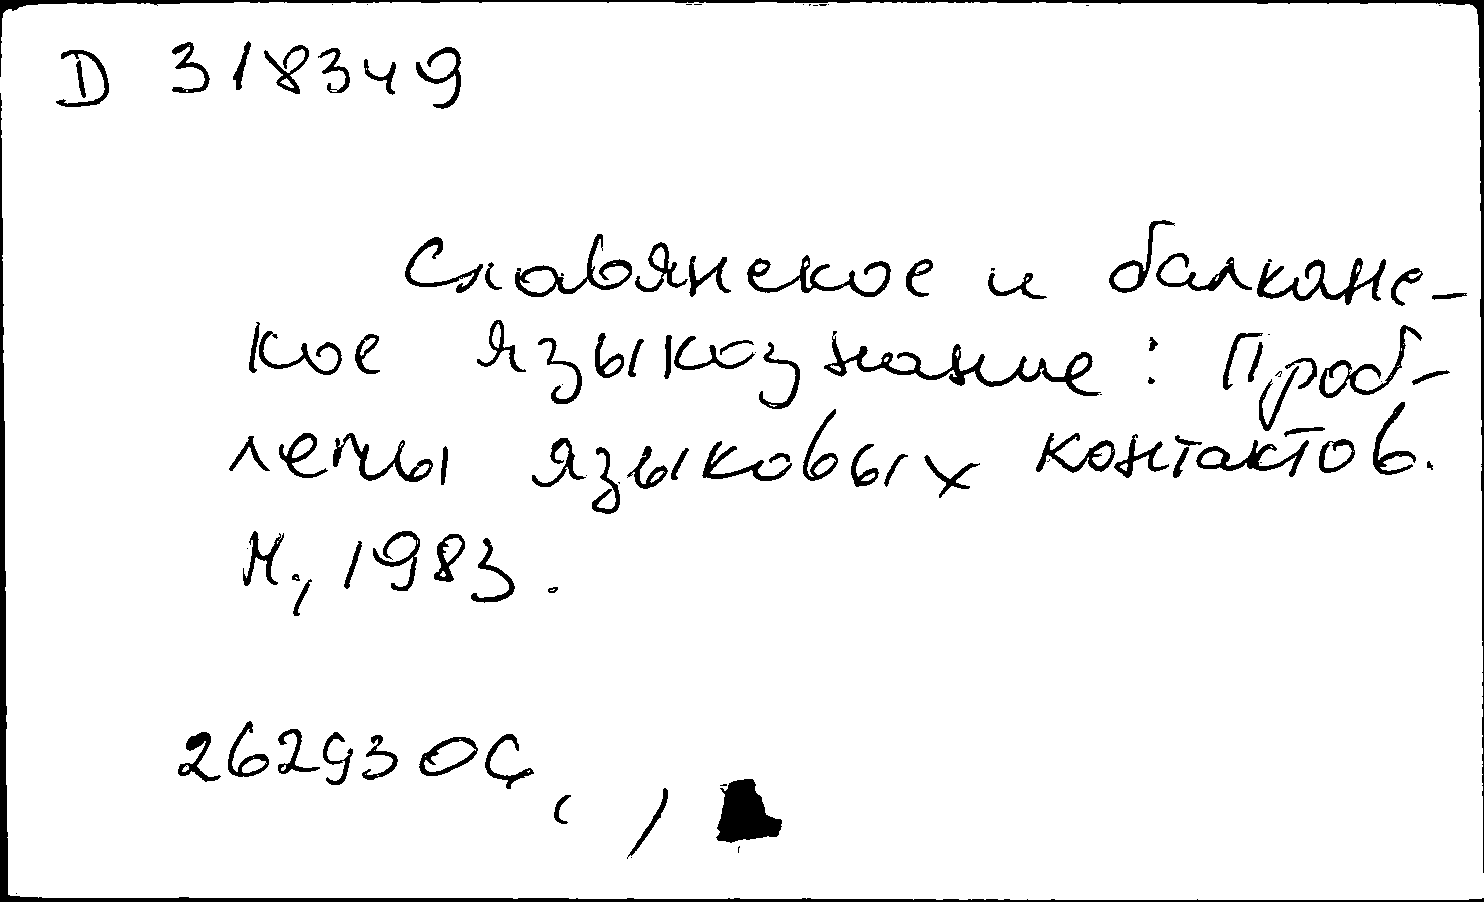 D 318349
Славянское и балканс-
кое языкознание: Проб-
лемы языковых контактов.
М., 1983.